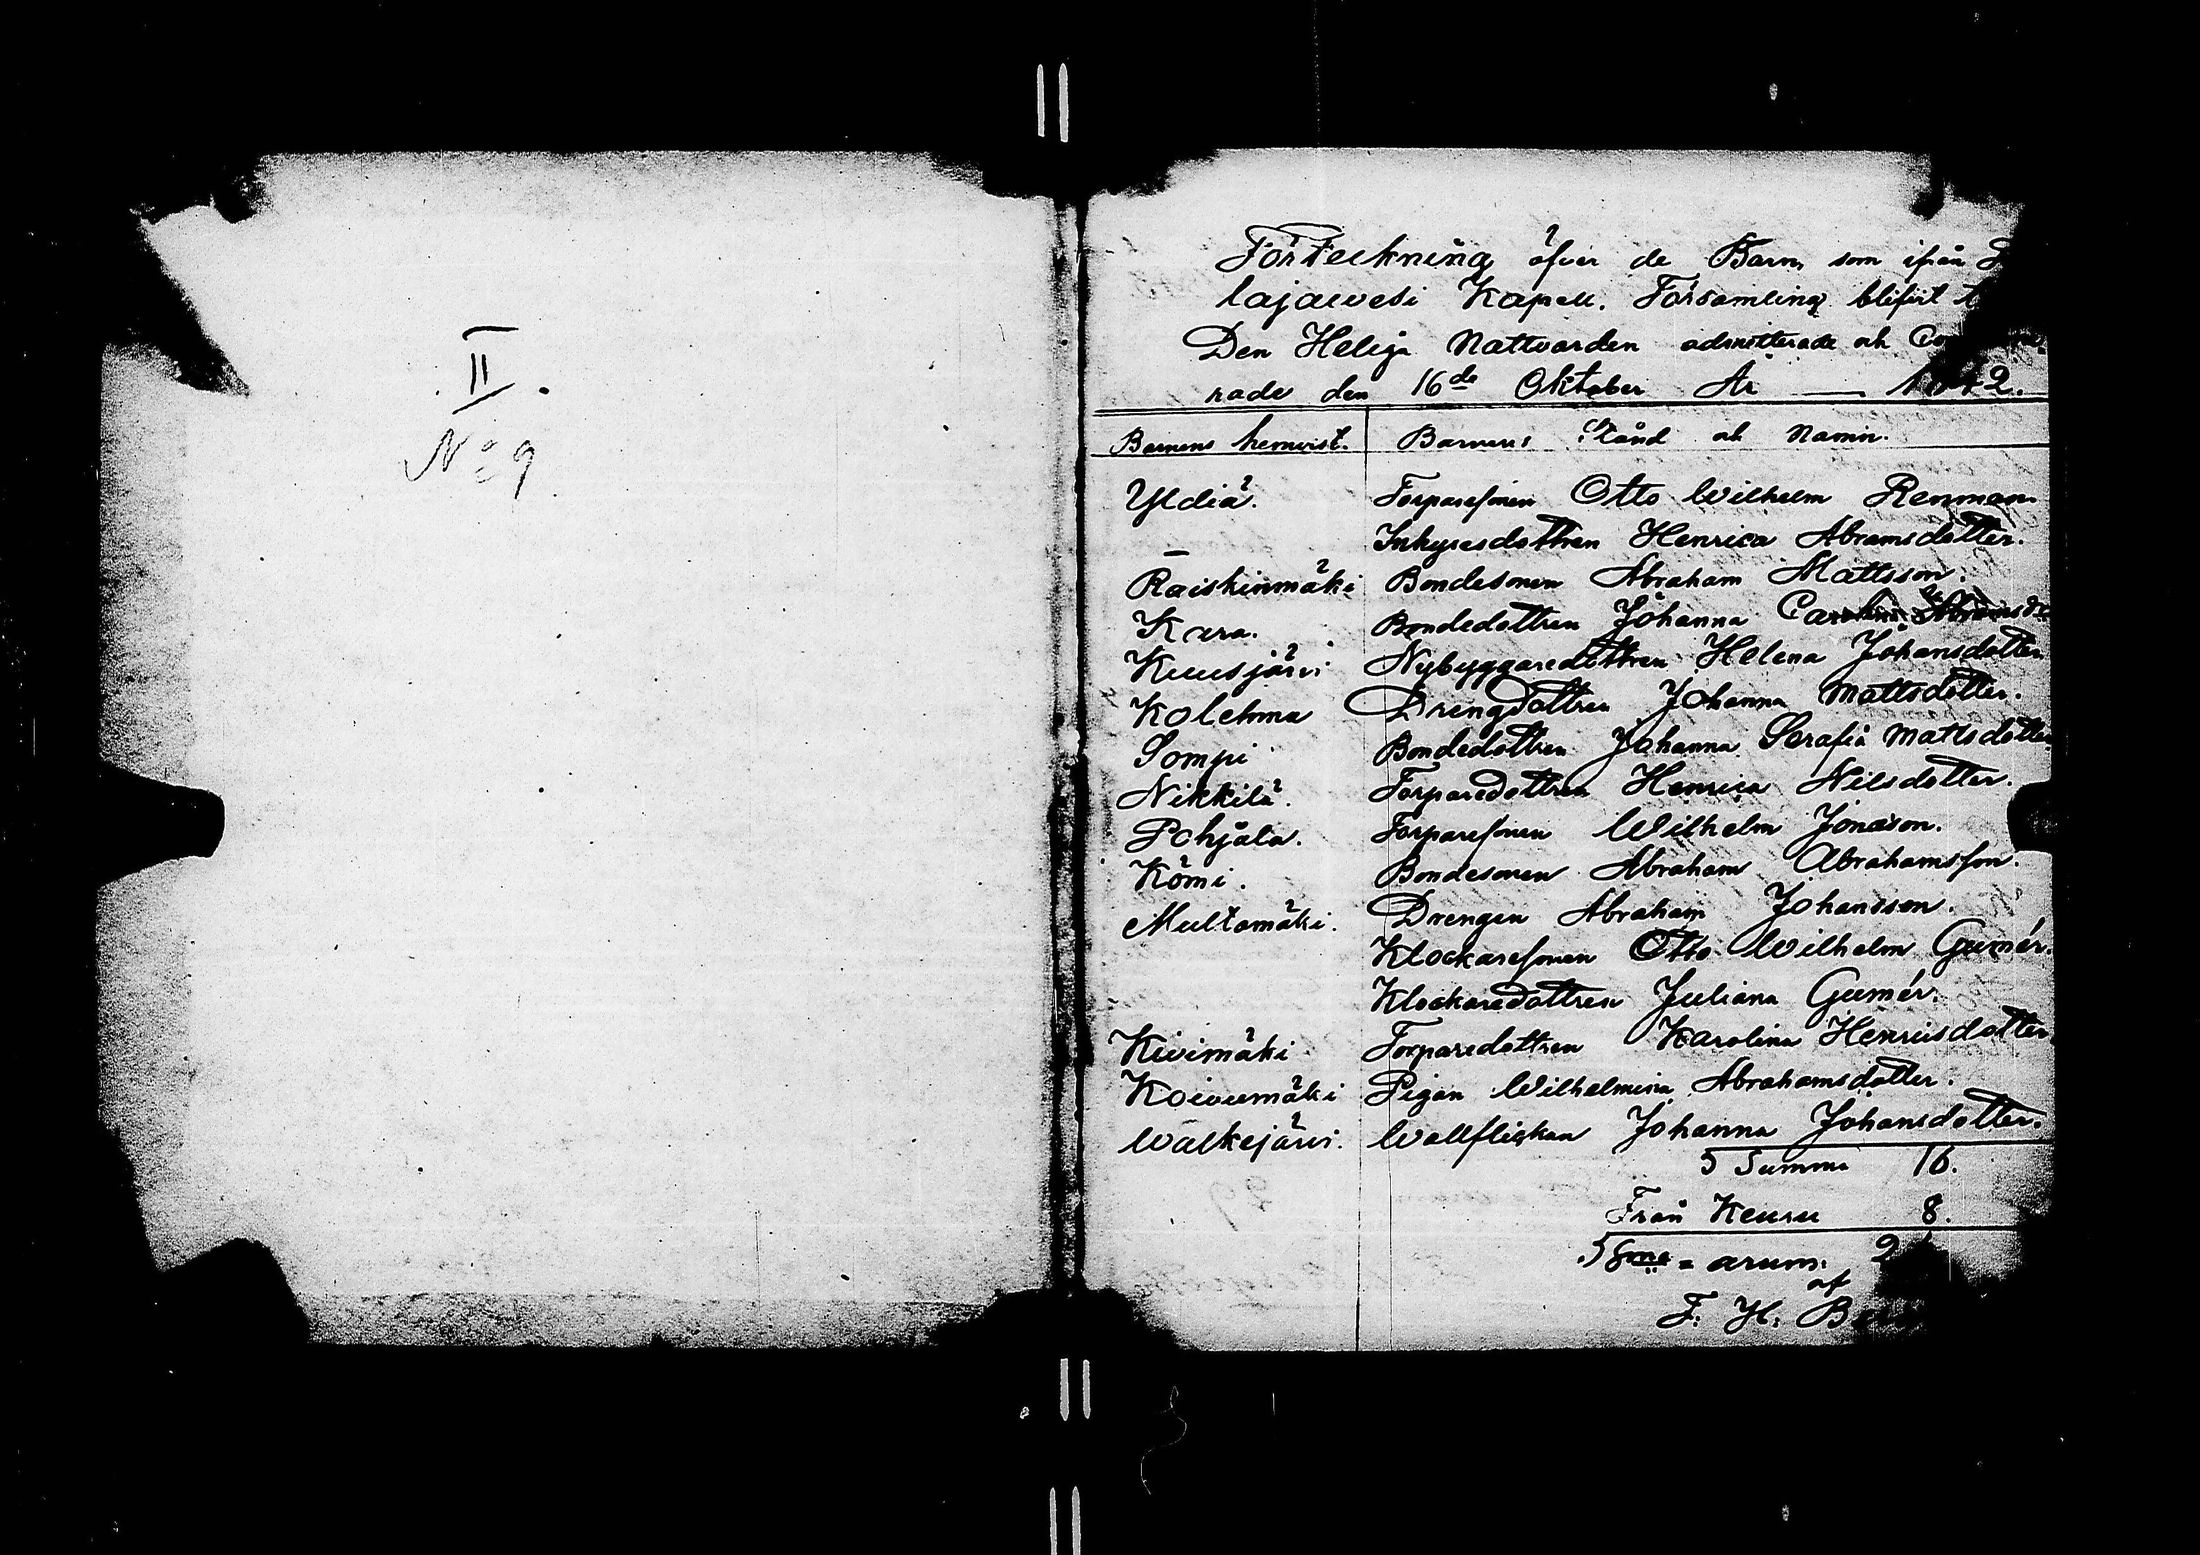 II.
No 9
Förteckning öfver de Barn som ifrån
lajawesi Kapell. Församling blifvit
Den Heliga Nattvarden admitterade och
rade den 16de Oktober År — 1842.
Barnens hemvist. Barnens Stånd och Namn.
Yldiä. Torparesonen Otto Wilhelm Renman
— Inhysesdottren Henrica Abramsdotter.
Raiskinmäki Bondesonen Abraham Mattsson.
Kara. Bondedottren Johanna Carolina Abramsdr
Kuusjärvi Nybyggaredottren Helena Johansdotter
Kolehma Drengdottren Johanna Mattsdotter.
Sompi Bondedottren Johanna Serafia Mattsdotter
Nikkilä. Torparedottren Henrica Nilsdotter.
Pohjala. Torparesonen Wilhelm Jonasson.
Kömi. Bondesonen Abraham Abrahamsson.
Multamäki. Drengen Abraham Johansson.
Klockaresonen Otto Wilhelm Gumér.
Klockaredottren Juliana Gumér.
Kivimäki Torparedottren Karolina Henricsdotter
Koivumäki Pigan Wilhelmina Abrahamsdotter.
Walkejärvi. Wallflickan Johanna Johansdotter.
Summa 16.
Från Keuru 8.
2
af
F. H.